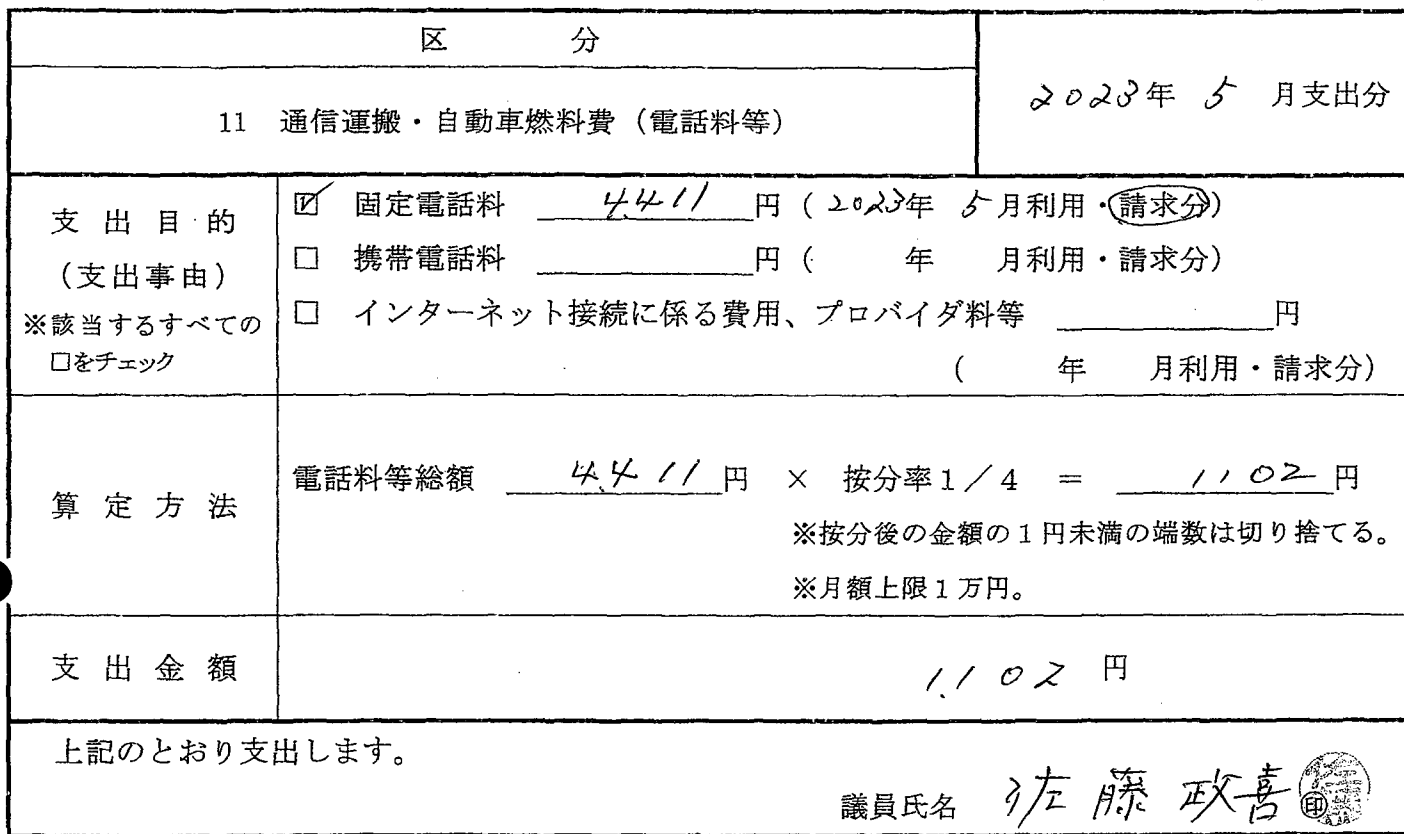 区 分
2023年 5 月支出分
11 通信運搬・自動車燃料費（電話料等）
支出目的
（支出事由）
※該当するすべての
□をチェック
☑ 固定電話料 4,411 円（2023年 5月利用・請求分）
□ 携帯電話料 円（ 年 月利用・請求分）
□ インターネット接続に係る費用、プロバイダ料等 円
（ 年 月利用・請求分）
算定方法
電話料等総額 4,411円 × 按分率1／4 ＝ 1,102円
※按分後の金額の1円未満の端数は切り捨てる。
※月額上限1万円。
支出金額
1,102 円
上記のとおり支出します。
議員氏名 佐藤 政喜 ㊞